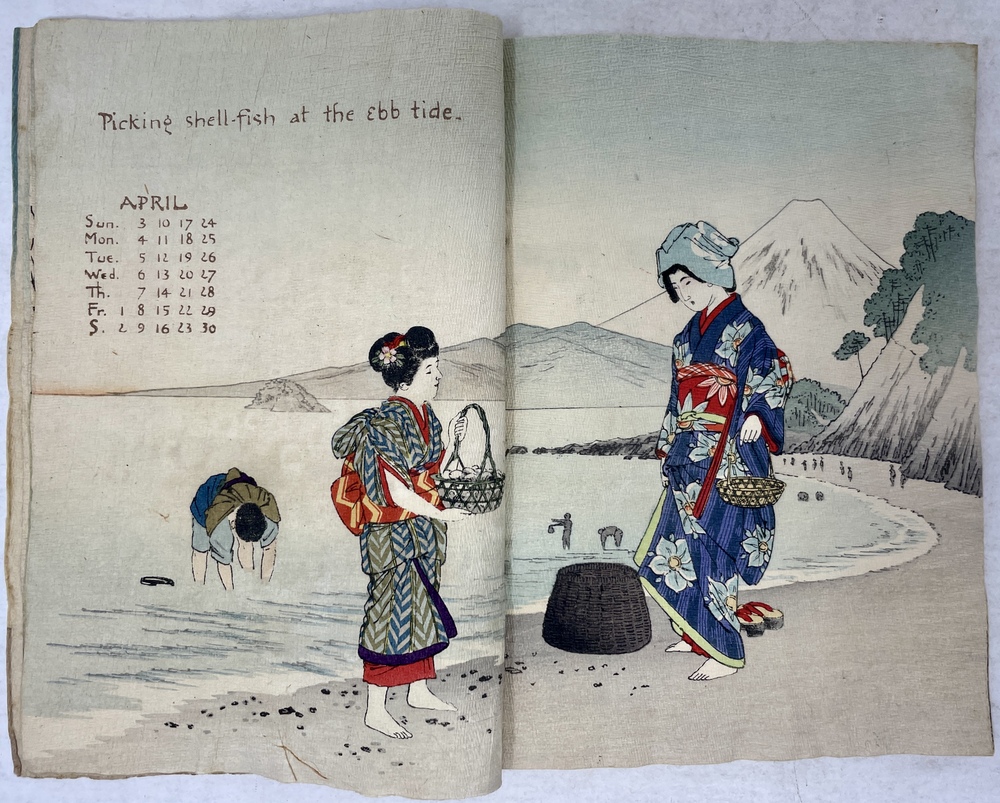 Picking shell-fish at the Ebb tide.
APRIL
Sun. 3 10 17 24
Mon. 4 11 18 25
Tue. 5 12 19 26
Wed. 6 13 20 27
Th. 7 14 21 28
Fr. 1 8 15 22 29
S. 2 9 16 23 30